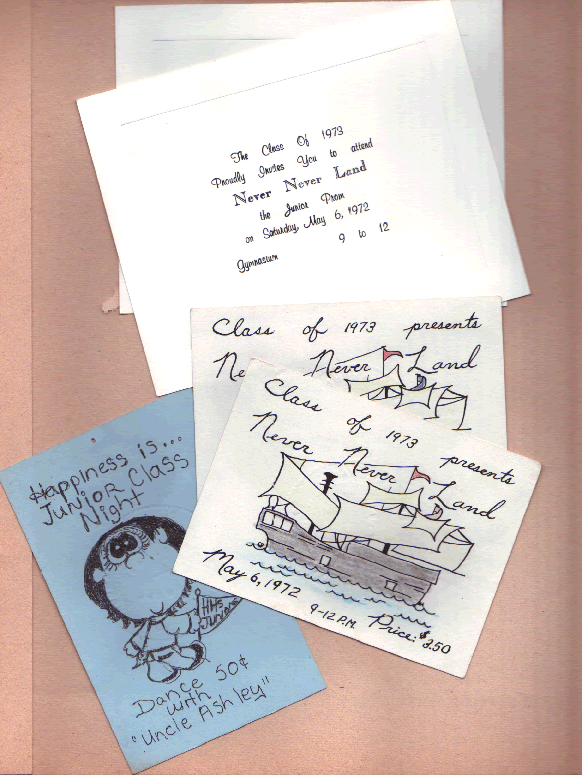 The Class Of 1973
Proudly Invites You to attend
Never Never Land
the Junior Prom
on Saturday, May 6, 1972
9 to 12
Gymnasium
Class of 1973 presents
Ne Never Land
Class of 1973 presents
Never Never Land
May 6, 1972
9-12 P.M. Price: $3.50
Happiness is...
Junior Class
Night
HHS
Juniors
Dance 50¢
with
"Uncle Ashley"